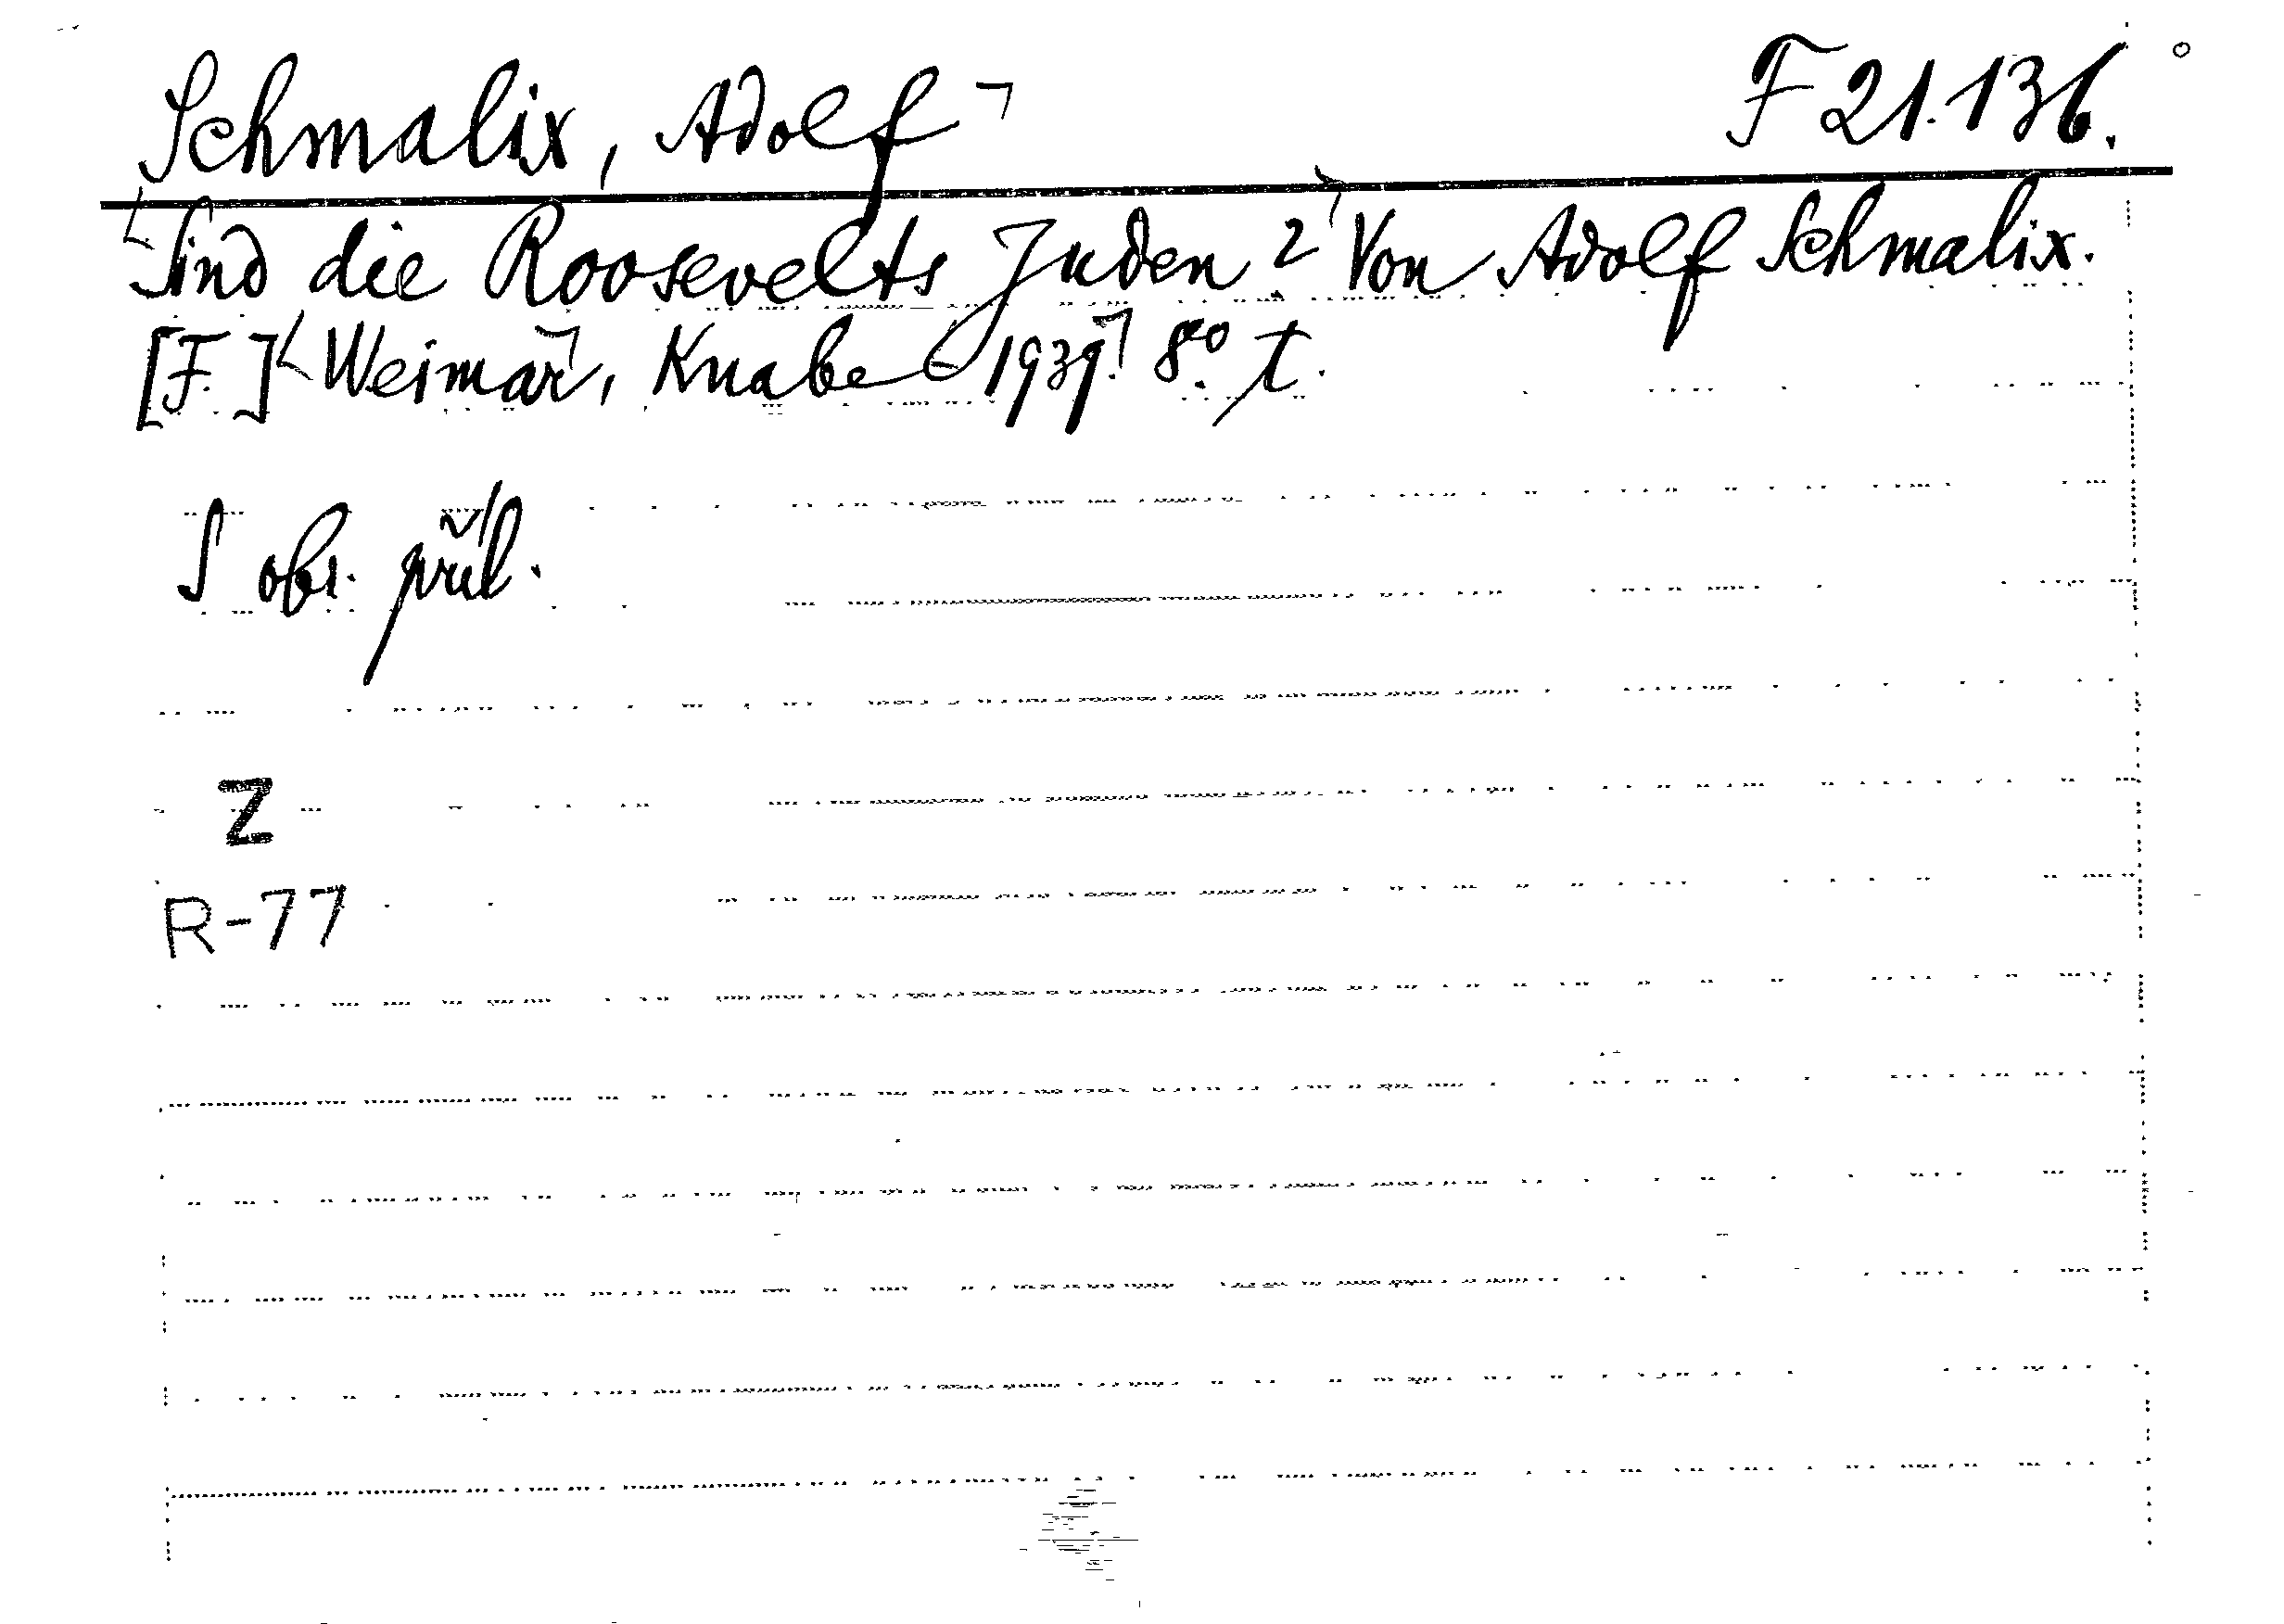 Schmalix, Adolf F 21.136.
Sind die Roosevelts Juden? Von Adolf Schmalix.
[F.] Weimar, Knabe 1939. 8° t.
S obr. příl.
Z
R-77